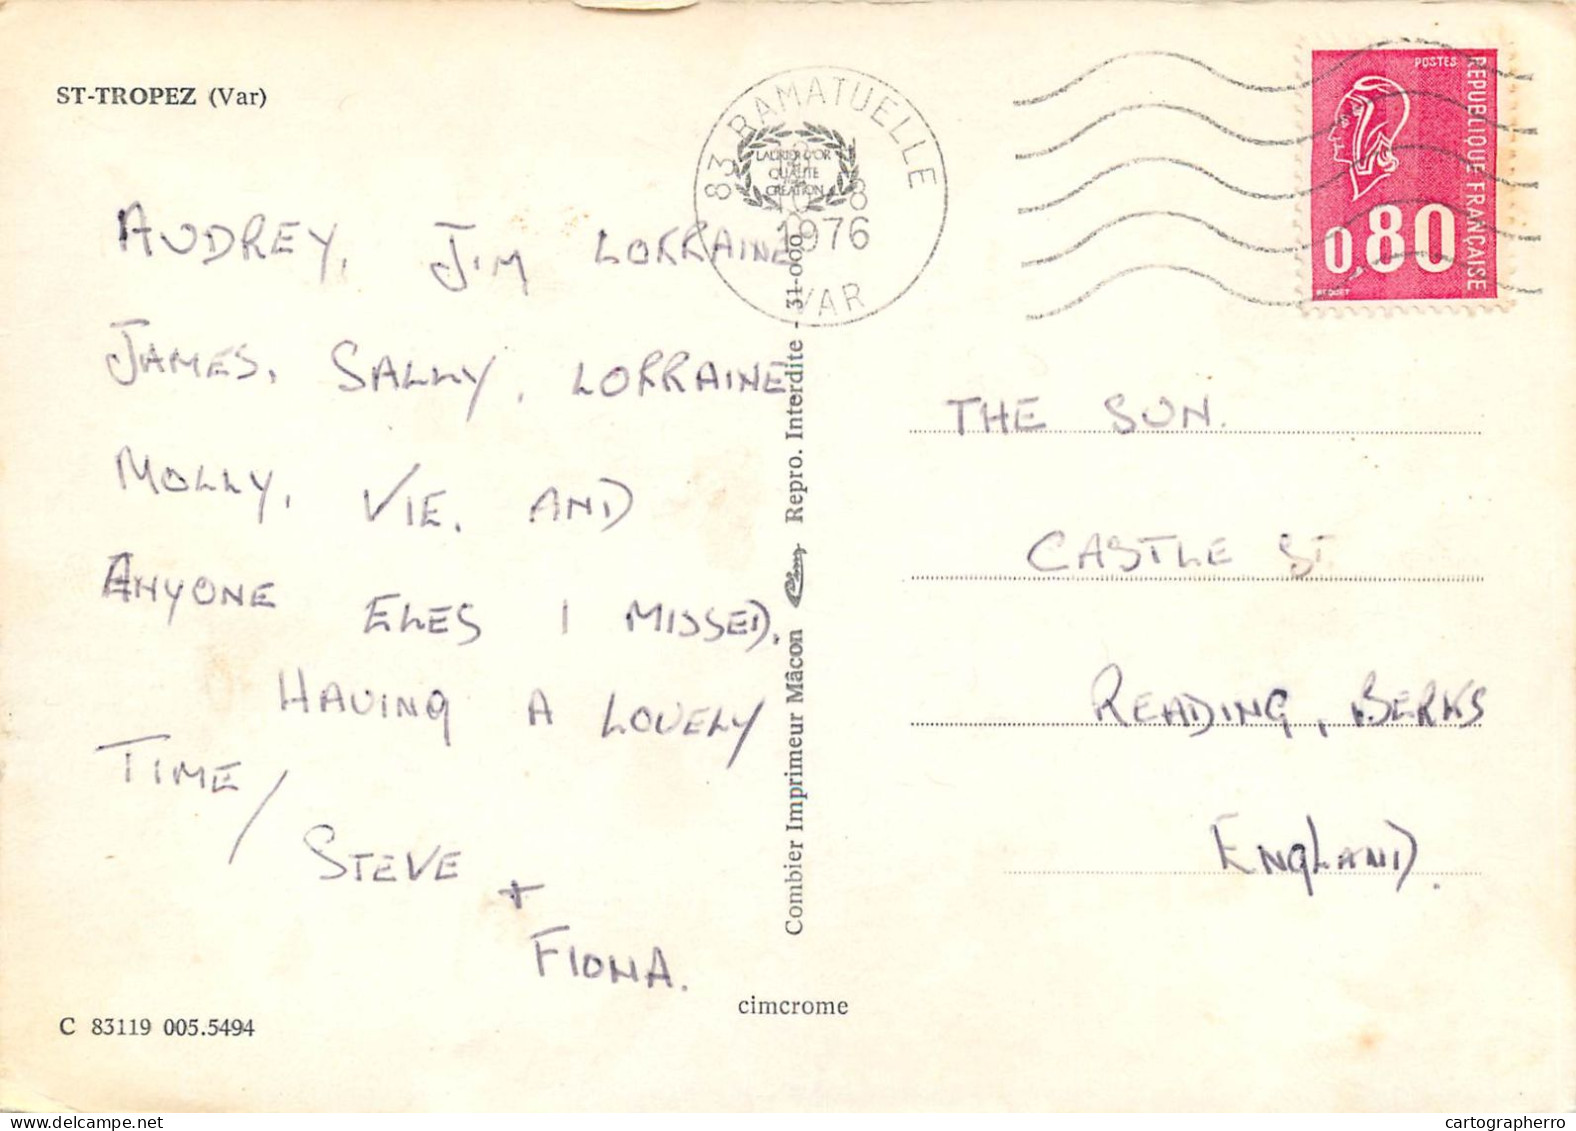 ST-TROPEZ (Var)
AUDREY, JIM LORRAINE
JAMES, SALLY, LORRAINE
MOLLY, VIE, AND
ANYONE ELES I MISSED.
HAVING A LOVELY
TIME/
STEVE
+
FIONA.
C 83119 005.5494
cimcrome
Combier Imprimeur Mâcon Repro. Interdite - 31-000
83 RAMATUELLE
LAURIER D'OR
QUALITE
CREATION
8
1976
VAR
POSTES
REPUBLIQUE FRANÇAISE
0,80
BEQUET
THE SUN.
CASTLE ST.
READING, BERKS
ENGLAND.
cartographerro